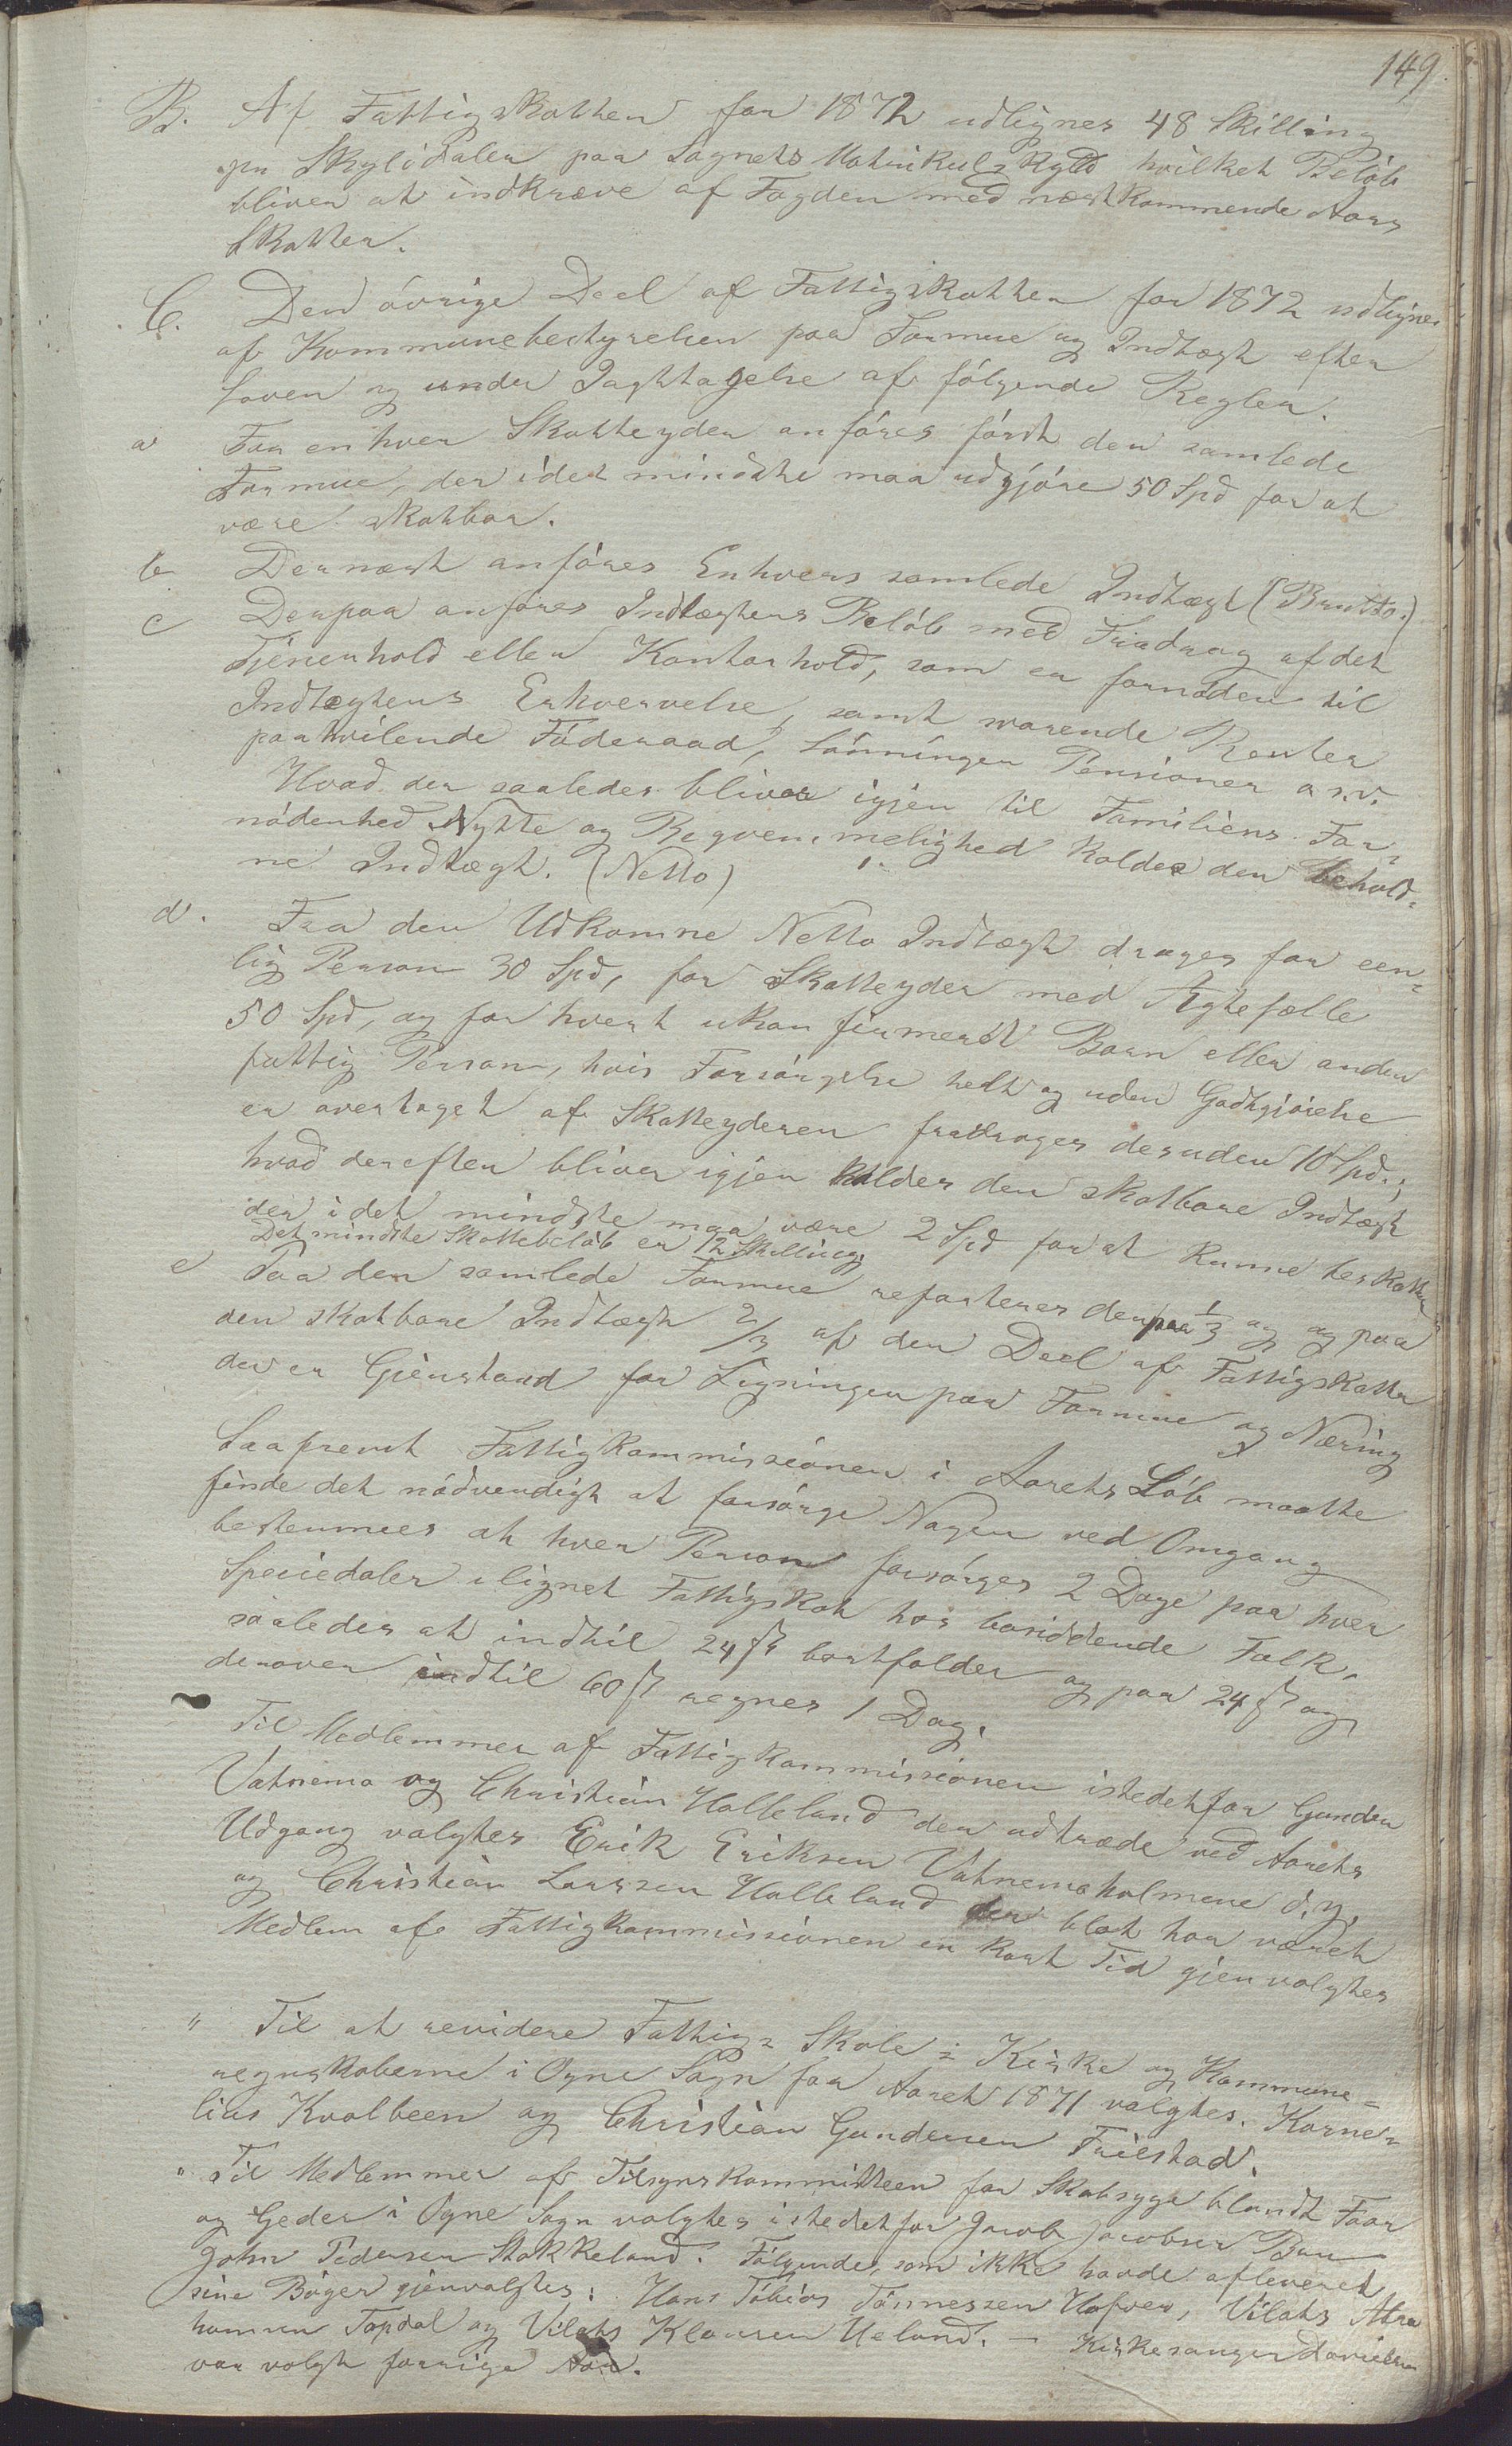 149
B. Af Fattigskatten for 1872 udlignes 48 Skilling
pr Skylddaler paa Sognets Matrikulskyld hvilket Beløb
bliver at indkræve af Fogden med næstkommende Aars
Skatter.
C. Den øvrige Deel af Fattigskatten for 1872 udlignes
af Kommunebestyrelsen paa Formue og Indtægt efter
Loven og under Iagttagelse af følgende Regler.
a For enhver Skatteyder anføres først den samlede
Formue, der idet mindste maa udgjøre 50 Spd for at
være skatbar.
b Dernæst anføres Enhvers samlede Indtægt (Brutto.)
c Derpaa anføres Indtægtens Beløb med Fradrag af det
Tjenerhold eller Kontorhold, som er fornøden til
Indtægtens Erhvervelse, samt svarende Renter
paahvilende Føderaad, Lønninger Pensioner o.s.v.
Hvad der saaledes bliver igjen til Familiens For-
nødenhed Nytte og Beqvemmelighed kaldes den behold-
ne Indtægt. (Netto)
d. Fra den Udkomne Netto Indtægt drages for een-
lig Person 30 Spd, for Skatteyder med Ægtefælle
50 Spd, og for hvert ukonfirmerdt Barn eller anden
fattig Person, hvis Forsørgelse helt og uden Godtgjørelse
er overtaget af Skatteyderen fradrages desuden 10 Spd.;
hvad derefter bliver igjen kaldes den skatbare Indtægt
der i det mindste maa være 2 Spd for at kunne beskattes
Det mindste Skattebeløb er 12 Skilling
e Paa den samlede Formue reparteres derpaa 1/3 og og paa
den skatbare Indtægt 2/3 af den Deel af Fattigskatten
der er Gjenstand for Ligningen paa Formue og Næring
Saafremt Fattigkommissionen i Aarets Løb maatte
finde det nødvendigt at forsørge Nogen ved Omgang
bestemmes at hver Person forsørges 2 Dage paa hver
Speciedaler ilignet Fattigskat hos bosiddende Folk,
saaledes at indtil 24 ß bortfalder og paa 24 ß og
derover indtil 60 ß regnes 1 Dag.
Til Medlemmer af Fattigkommissionen istedetfor Gunder
Vatnemo og Christian Halleland der udtræde ved Aarets
Udgang valgtes Erik Eriksen Vatnemoholmene d.y.
og Christian Larssen Halleland der blot har været
Medlem af Fattigkommissionen en kort Tid gjenvalgtes
" Til at revidere Fattig- Skole- Kirke og Kommune-
regnskaberne i Ogne Sogn for Aaret 1871 valgtes. Korne-
lius Kvalbeen og Christian Gundersen Friestad.
" Til Medlemmer af Tilsynskommitteen for Skabsyge blandt Faar
og Geder i Ogne Sogn valgtes istedetfor Jacob Jacobsen Bru
John Pedersen Stokkeland. Følgende, som ikke havde afleveret
sine Bøger gjenvalgtes: Hans Tobias Tønnessen Hafver, Vilats Abra
hamsen Topdal og Vilats Klausen Ueland. — Kirkesanger Danielsen
var valgt forrige Aar.